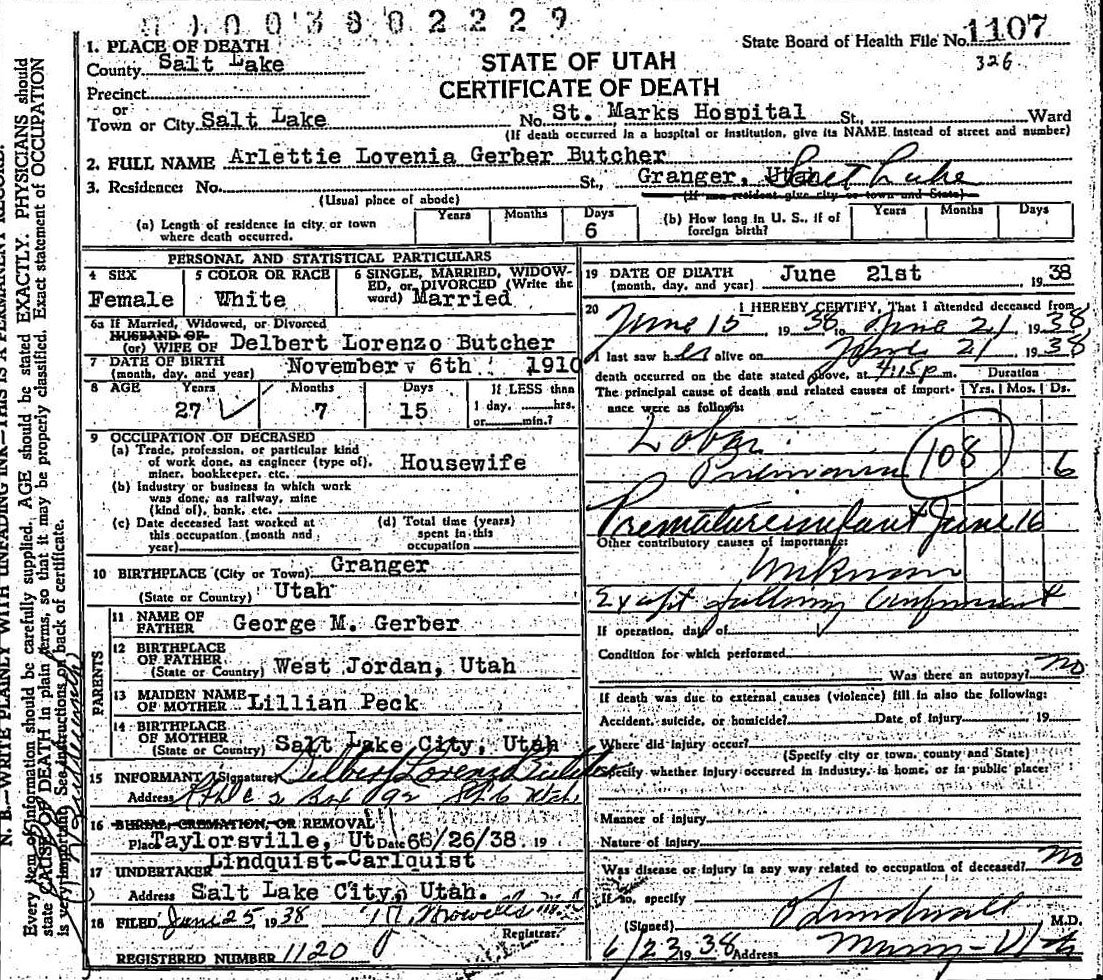 0 0 0 0 3 8 0 2 2 2 9
State Board of Health File No. 1107
326
STATE OF UTAH
CERTIFICATE OF DEATH
1. PLACE OF DEATH
County Salt Lake
Precinct
or
Town or City Salt Lake No. St. Marks Hospital St., Ward
(If death occurred in a hospital or institution, give its NAME instead of street and number)
2. FULL NAME Arlettie Lovenia Gerber Butcher
3. Residence: No. St., Granger, Utah Salt Lake
(Usual place of abode) (If non resident give city or town and State)
(a) Length of residence in city or town where death occurred. Years Months Days 6
(b) How long in U. S., if of foreign birth? Years Months Days
PERSONAL AND STATISTICAL PARTICULARS
4 SEX Female
5 COLOR OR RACE White
6 SINGLE, MARRIED, WIDOWED, or DIVORCED (Write the word) Married
6a If Married, Widowed, or Divorced
HUSBAND OF
(or) WIFE OF Delbert Lorenzo Butcher
7 DATE OF BIRTH (month, day, and year) November 6th 1910
8 AGE Years 27 Months 7 Days 15 If LESS than 1 day, hrs. or min.?
9 OCCUPATION OF DECEASED
(a) Trade, profession, or particular kind of work done, as engineer (type of), miner, bookkeeper, etc. Housewife
(b) Industry or business in which work was done, as railway, mine (kind of), bank, etc.
(c) Date deceased last worked at this occupation (month and year)
(d) Total time (years) spent in this occupation
10 BIRTHPLACE (City or Town) Granger
(State or Country) Utah
PARENTS
11 NAME OF FATHER George M. Gerber
12 BIRTHPLACE OF FATHER (State or Country) West Jordan, Utah
13 MAIDEN NAME OF MOTHER Lillian Peck
14 BIRTHPLACE OF MOTHER (State or Country) Salt Lake City, Utah
15 INFORMANT (Signature) Delbert Lorenzo Butcher
Address Utah
16 BURIAL, CREMATION, OR REMOVAL
Place Taylorsville, Ut Date 6/26/38. 19
17 UNDERTAKER Lindquist-Carlquist
Address Salt Lake City, Utah.
18 FILED June 25 1938
Registrar.
REGISTERED NUMBER 1120
19 DATE OF DEATH (month, day, and year) June 21st 1938
20 I HEREBY CERTIFY, That I attended deceased from
June 15, 1938, to June 21 1938,
I last saw her alive on June 21 1938
death occurred on the date stated above, at 4:15 p.m. Duration
The principal cause of death and related causes of importance were as follows: Yrs. Mos. Ds.
Lobar
Pneumonia 108 6
Premature infant June 16
Other contributory causes of importance:
Unknown
Except following Confinement
If operation, date of
Condition for which performed
Was there an autopsy? no
If death was due to external causes (violence) fill in also the following:
Accident, suicide, or homicide? Date of injury 19
Where did injury occur?
(Specify city or town, county and State)
Specify whether injury occurred in industry, in home, or in public place:
Manner of injury
Nature of injury
Was disease or injury in any way related to occupation of deceased? no
If so, specify
(Signed) M.D.
6/23 1938 Address Murray - Utah
N. B.—WRITE PLAINLY WITH UNFADING INK—THIS IS A PERMANENT RECORD.
Every item of information should be carefully supplied. AGE should be stated EXACTLY. PHYSICIANS should
state CAUSE OF DEATH in plain terms, so that it may be properly classified. Exact statement of OCCUPATION
is very important. See instructions on back of certificate.